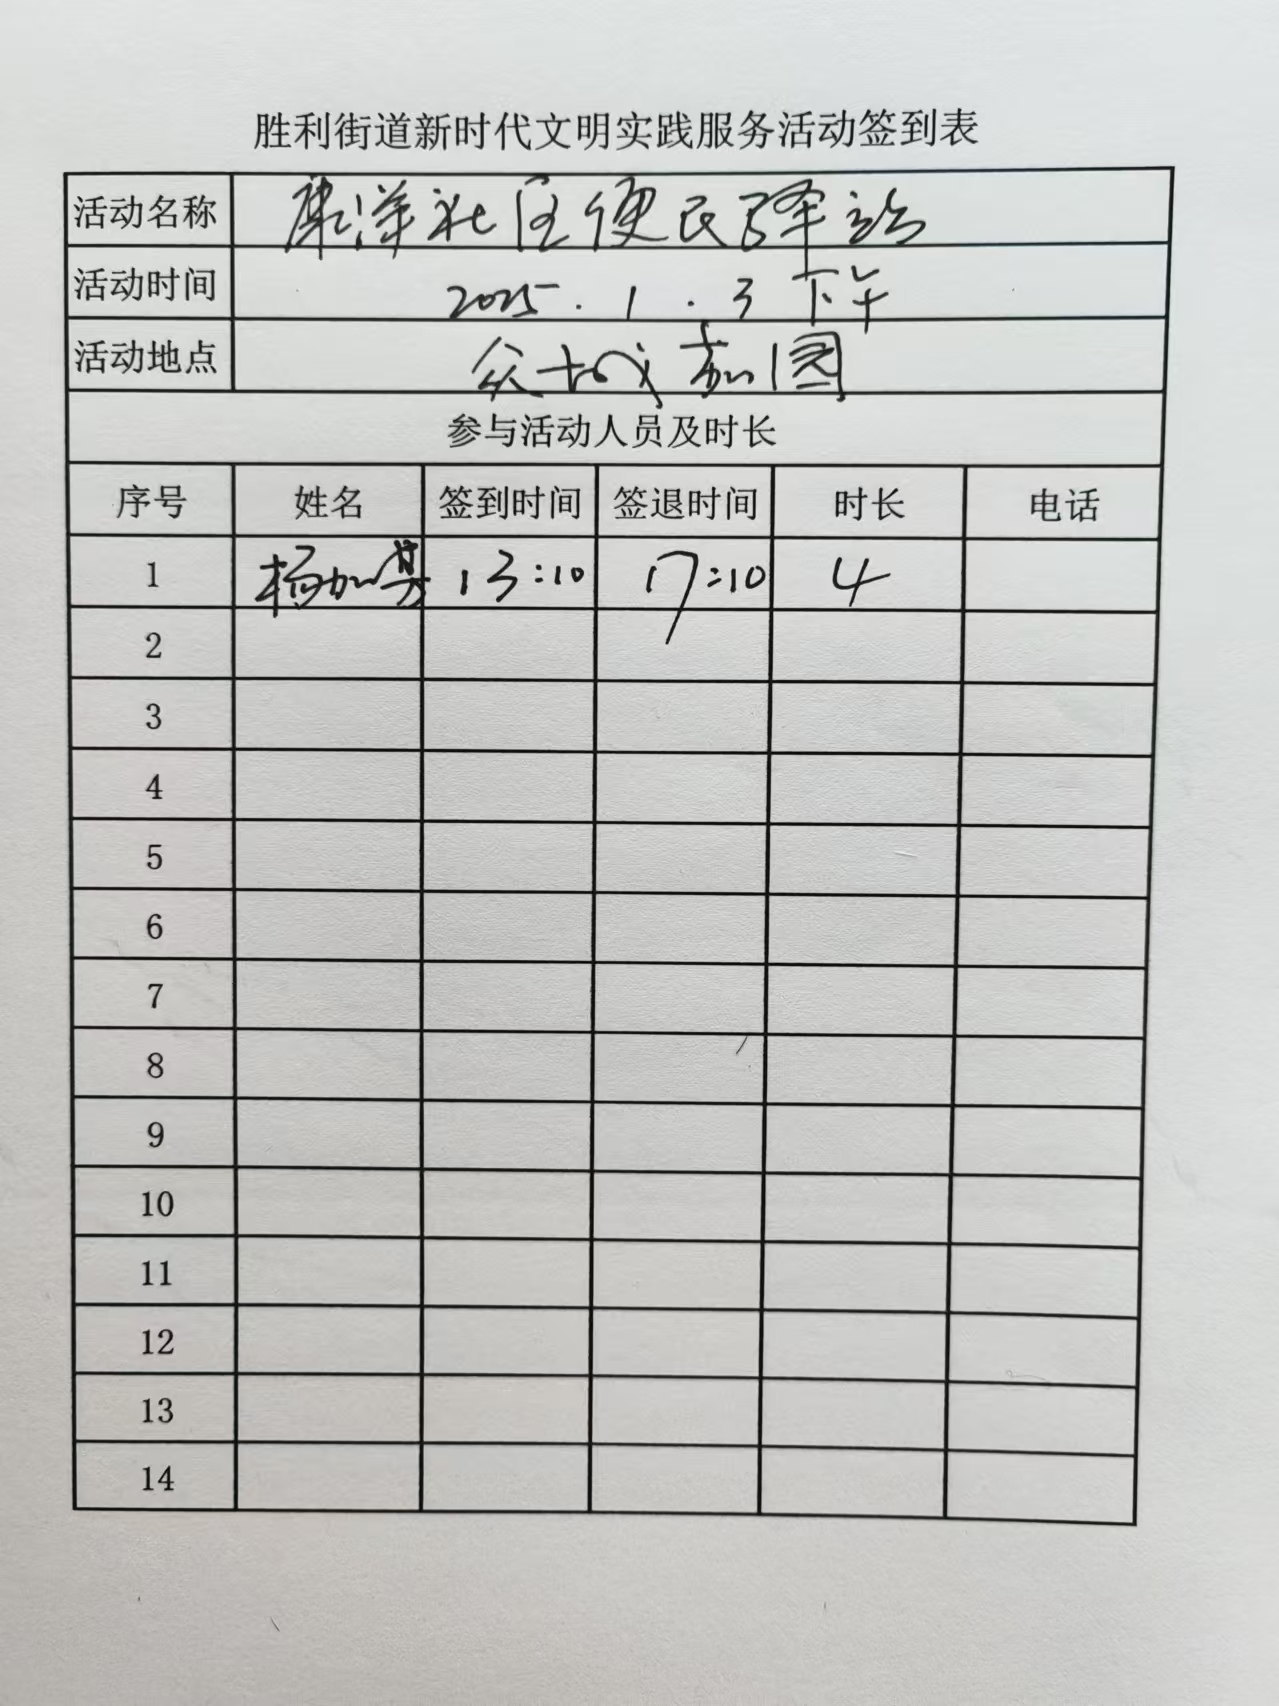 胜利街道新时代文明实践服务活动签到表
活动名称 康洋社区便民驿站
活动时间 2025.1.3下午
活动地点 众城嘉园
参与活动人员及时长
序号 姓名 签到时间 签退时间 时长 电话
1 杨加 13:10 17:10 4
2
3
4
5
6
7
8
9
10
11
12
13
14